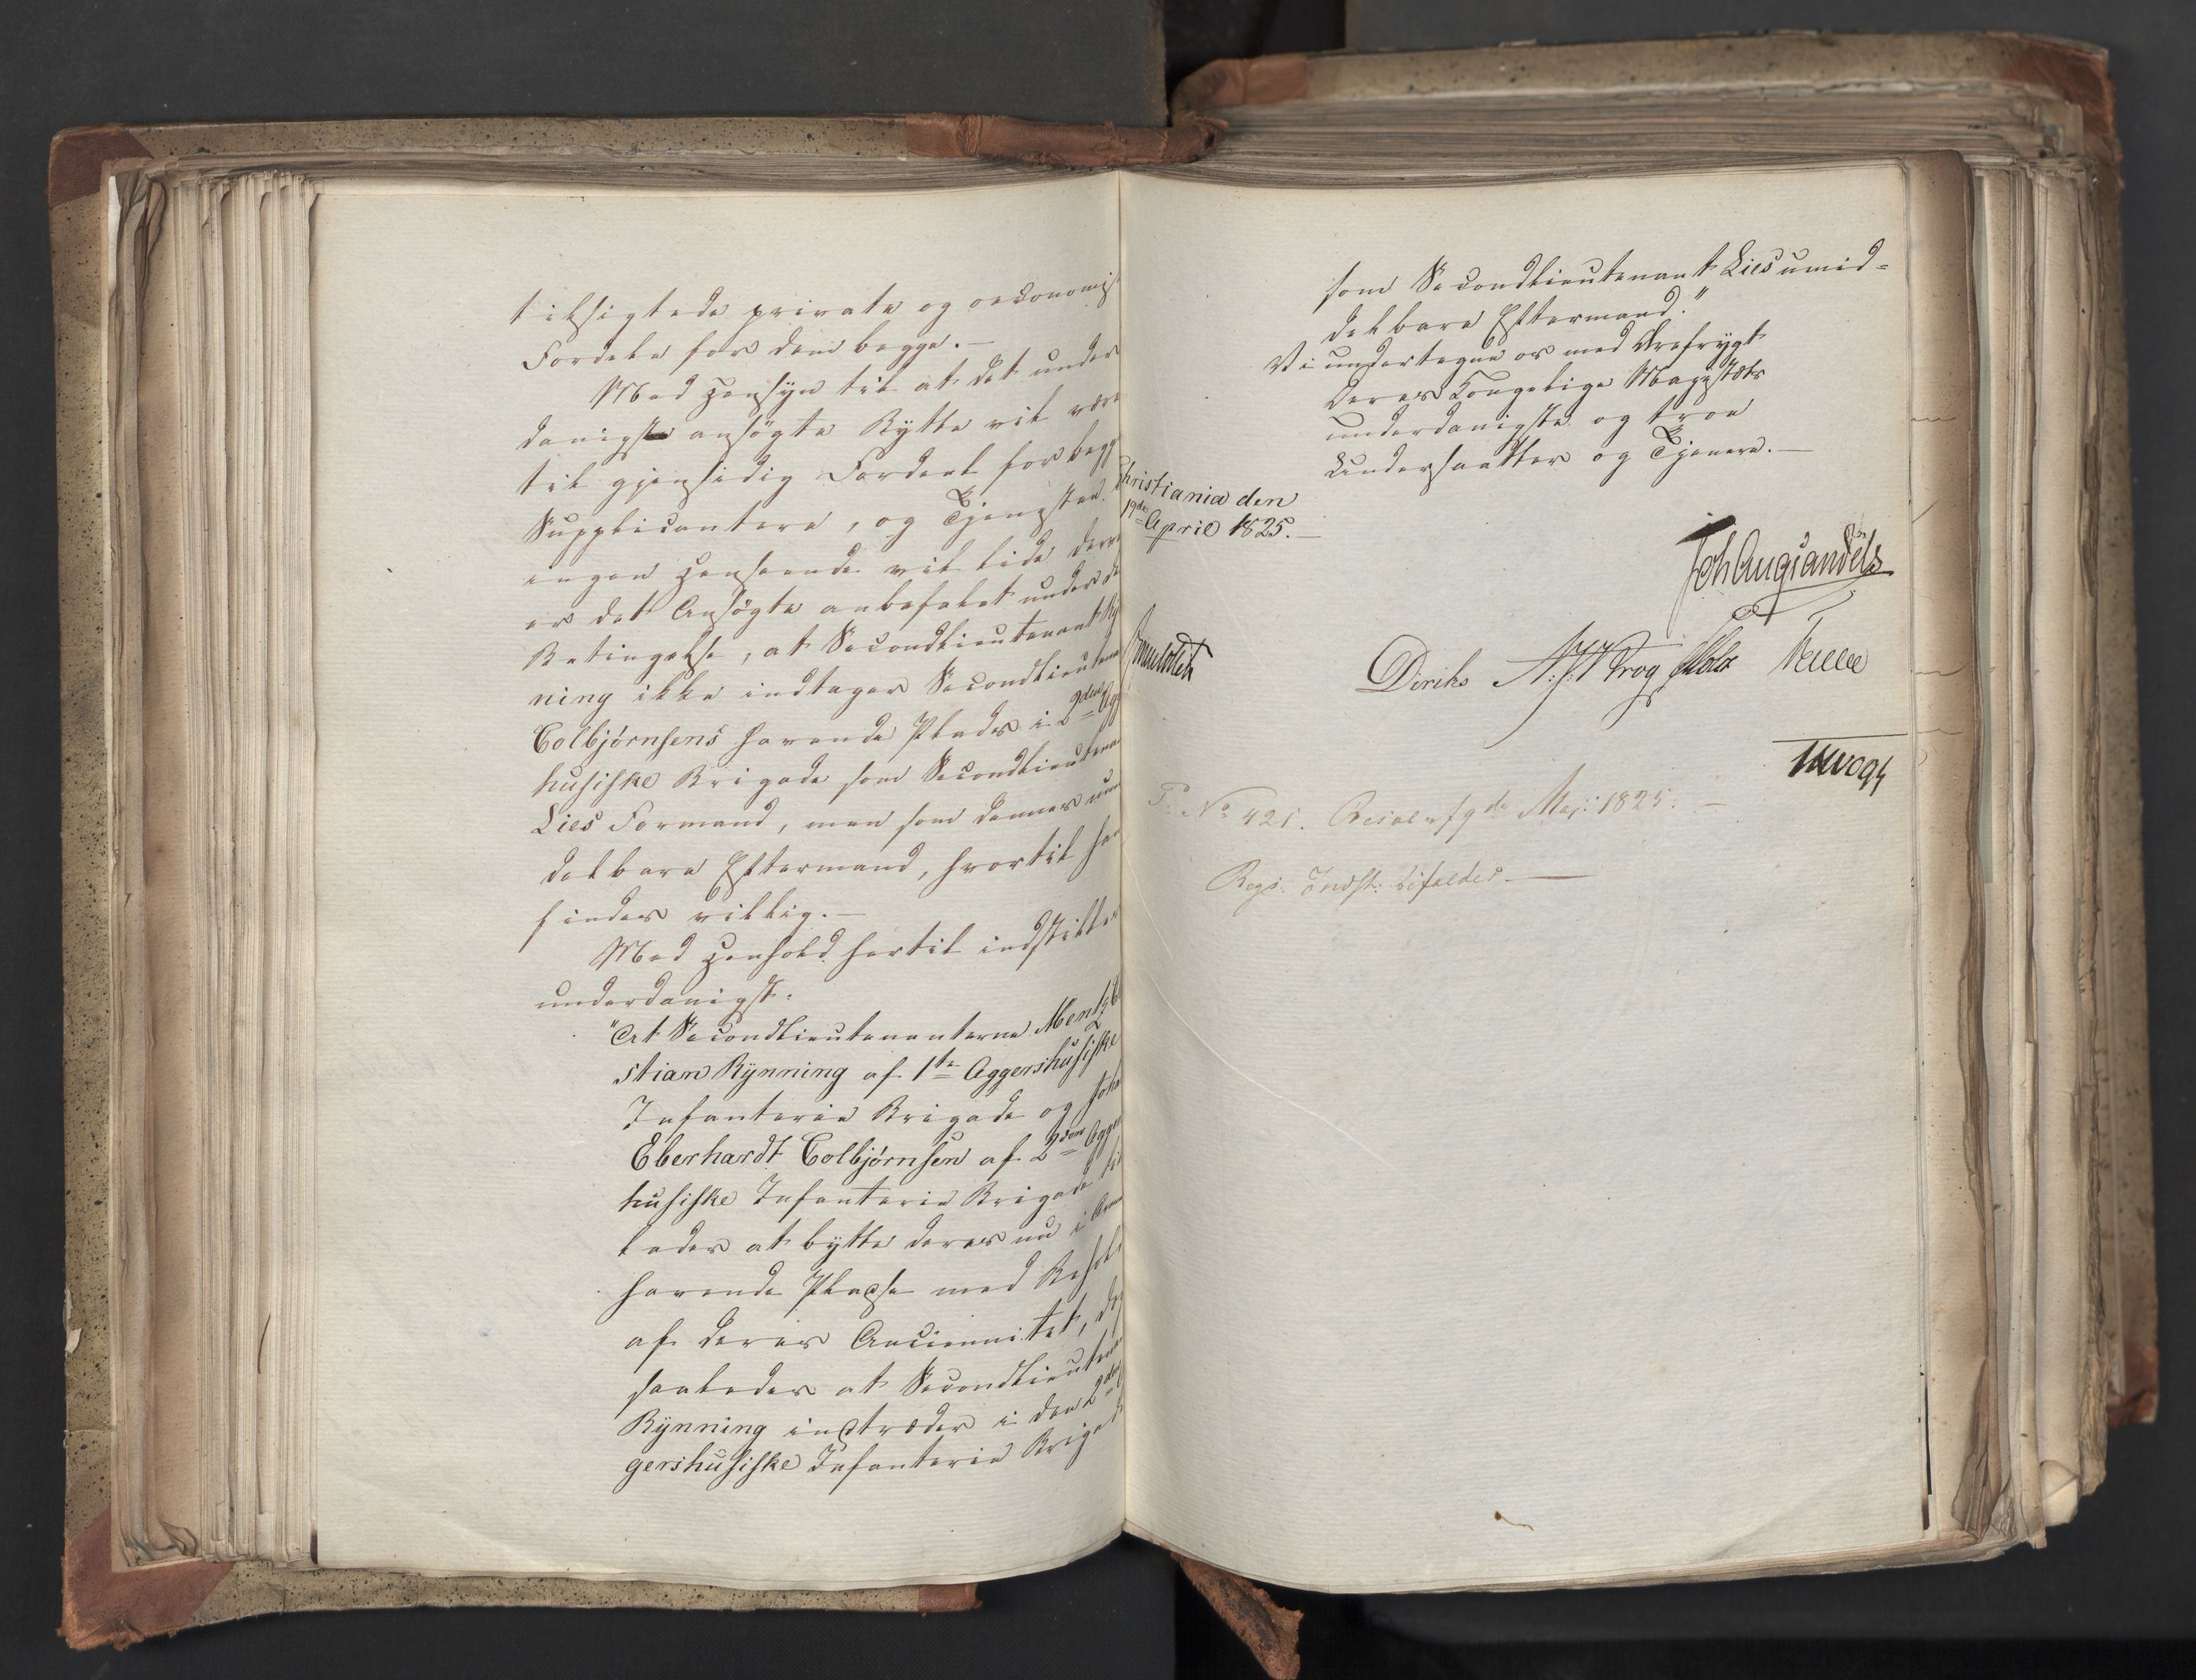 tilsigtede private og oeconomis
Fordele for dem begge.—
Med Hensyn til at det under
danigst ansøgte Bytte vil være
til gjensidig Fordeel for begg
Supplicantere, og Tjenesten
ingen Henseende vil lide der
er det Ansøgte anbefalet under d
Betingelse, at Secondlieutenant Ry
ning ikke indtager Secondlieutena
Colbjørnsens havende Plads i 2den Agg
husiske Brigade som Secondlieutena
Lies Formand, men som dennes um
delbare Eftermand, hvortil ha
findes villig.—
Med Henhold hertil indstilles
underdanigst:
"At Secondlieutenanterne Mentz
stian Rynning af 1ste Aggershusiske
Infanterie Brigade og Joha
Eberhardt Colbjørnsen af 2den Agger
husiske Infanterie Brigade til
lades at bytte deres nu i Arm
havende Pladse med Behold
af deres Anciennitet, dog
saaledes at Secondlieutena
Rynning indtræder i den 2den
gershusiske Infanterie Brigad
som Secondlieutenant Lies umid=
delbare Eftermand."
Vi undertegne os med Ærefrygt
Deres Kongelige Majestæts
underdanigste og troe
Undersaatter og Tjenere.—
Christiania den
19de April 1825.—
Joh Aug Sandels
Diriks N. J. W Krog Holst
JHVogt
P. No 421. Resol. af 9de Maj: 1825.—
Regj. Indst: bifaldes.—